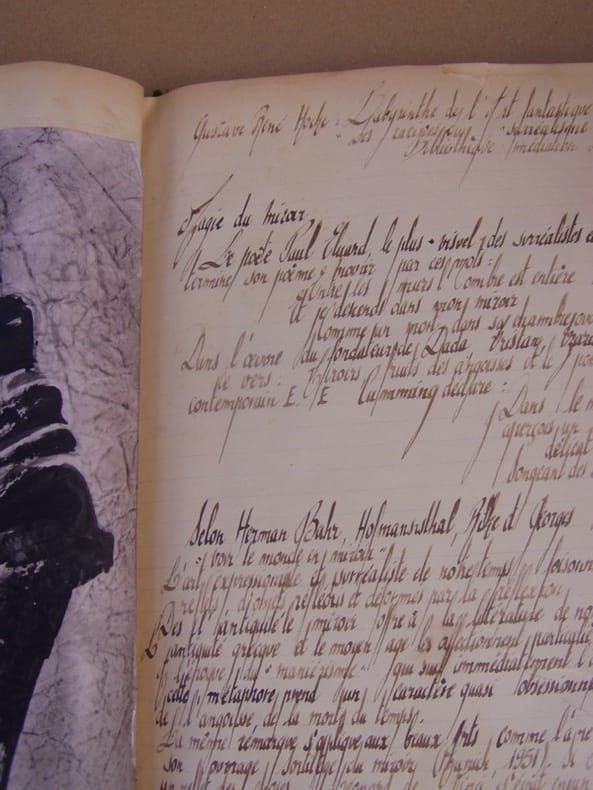 Gustave René Hocke : Labyrinthe de l'Art fantastique
Les racines du surréalisme
Bibliothèque médiation
Magie du miroir
Le poète Paul Eluard, le plus "visuel" des surréalistes
termine son poème "mourir" par ces mots :
Entre les murs l'ombre est entière
Et je descends dans mon miroir
Comme un mort dans sa chambre
Dans l'œuvre du fondateur de Dada Tristan Tzara
ce vers : Miroirs fruits des angoisses et le
contemporain E. E Cumming déclare :
Dans le
aperçois un
délicat
Songeant des
Selon Herman Bahr, Hofmansthal, Rilke et Georges
"voir le monde en miroir"
L'art expressionniste et surréaliste de notre temps
d'objets réfléchis et déformés par la réflexion
Dès l'antiquité le miroir offre à la littérature de
L'antiquité grecque et le moyen age les affectionnent
l'époque du "maniérisme" qui suit immédiatement
cette métaphore prend un caractère quasi
de l'angoisse, de la mort, du temps.
La même remarque s'applique aux beaux Arts comme
son ouvrage sortilège du miroir 1951).